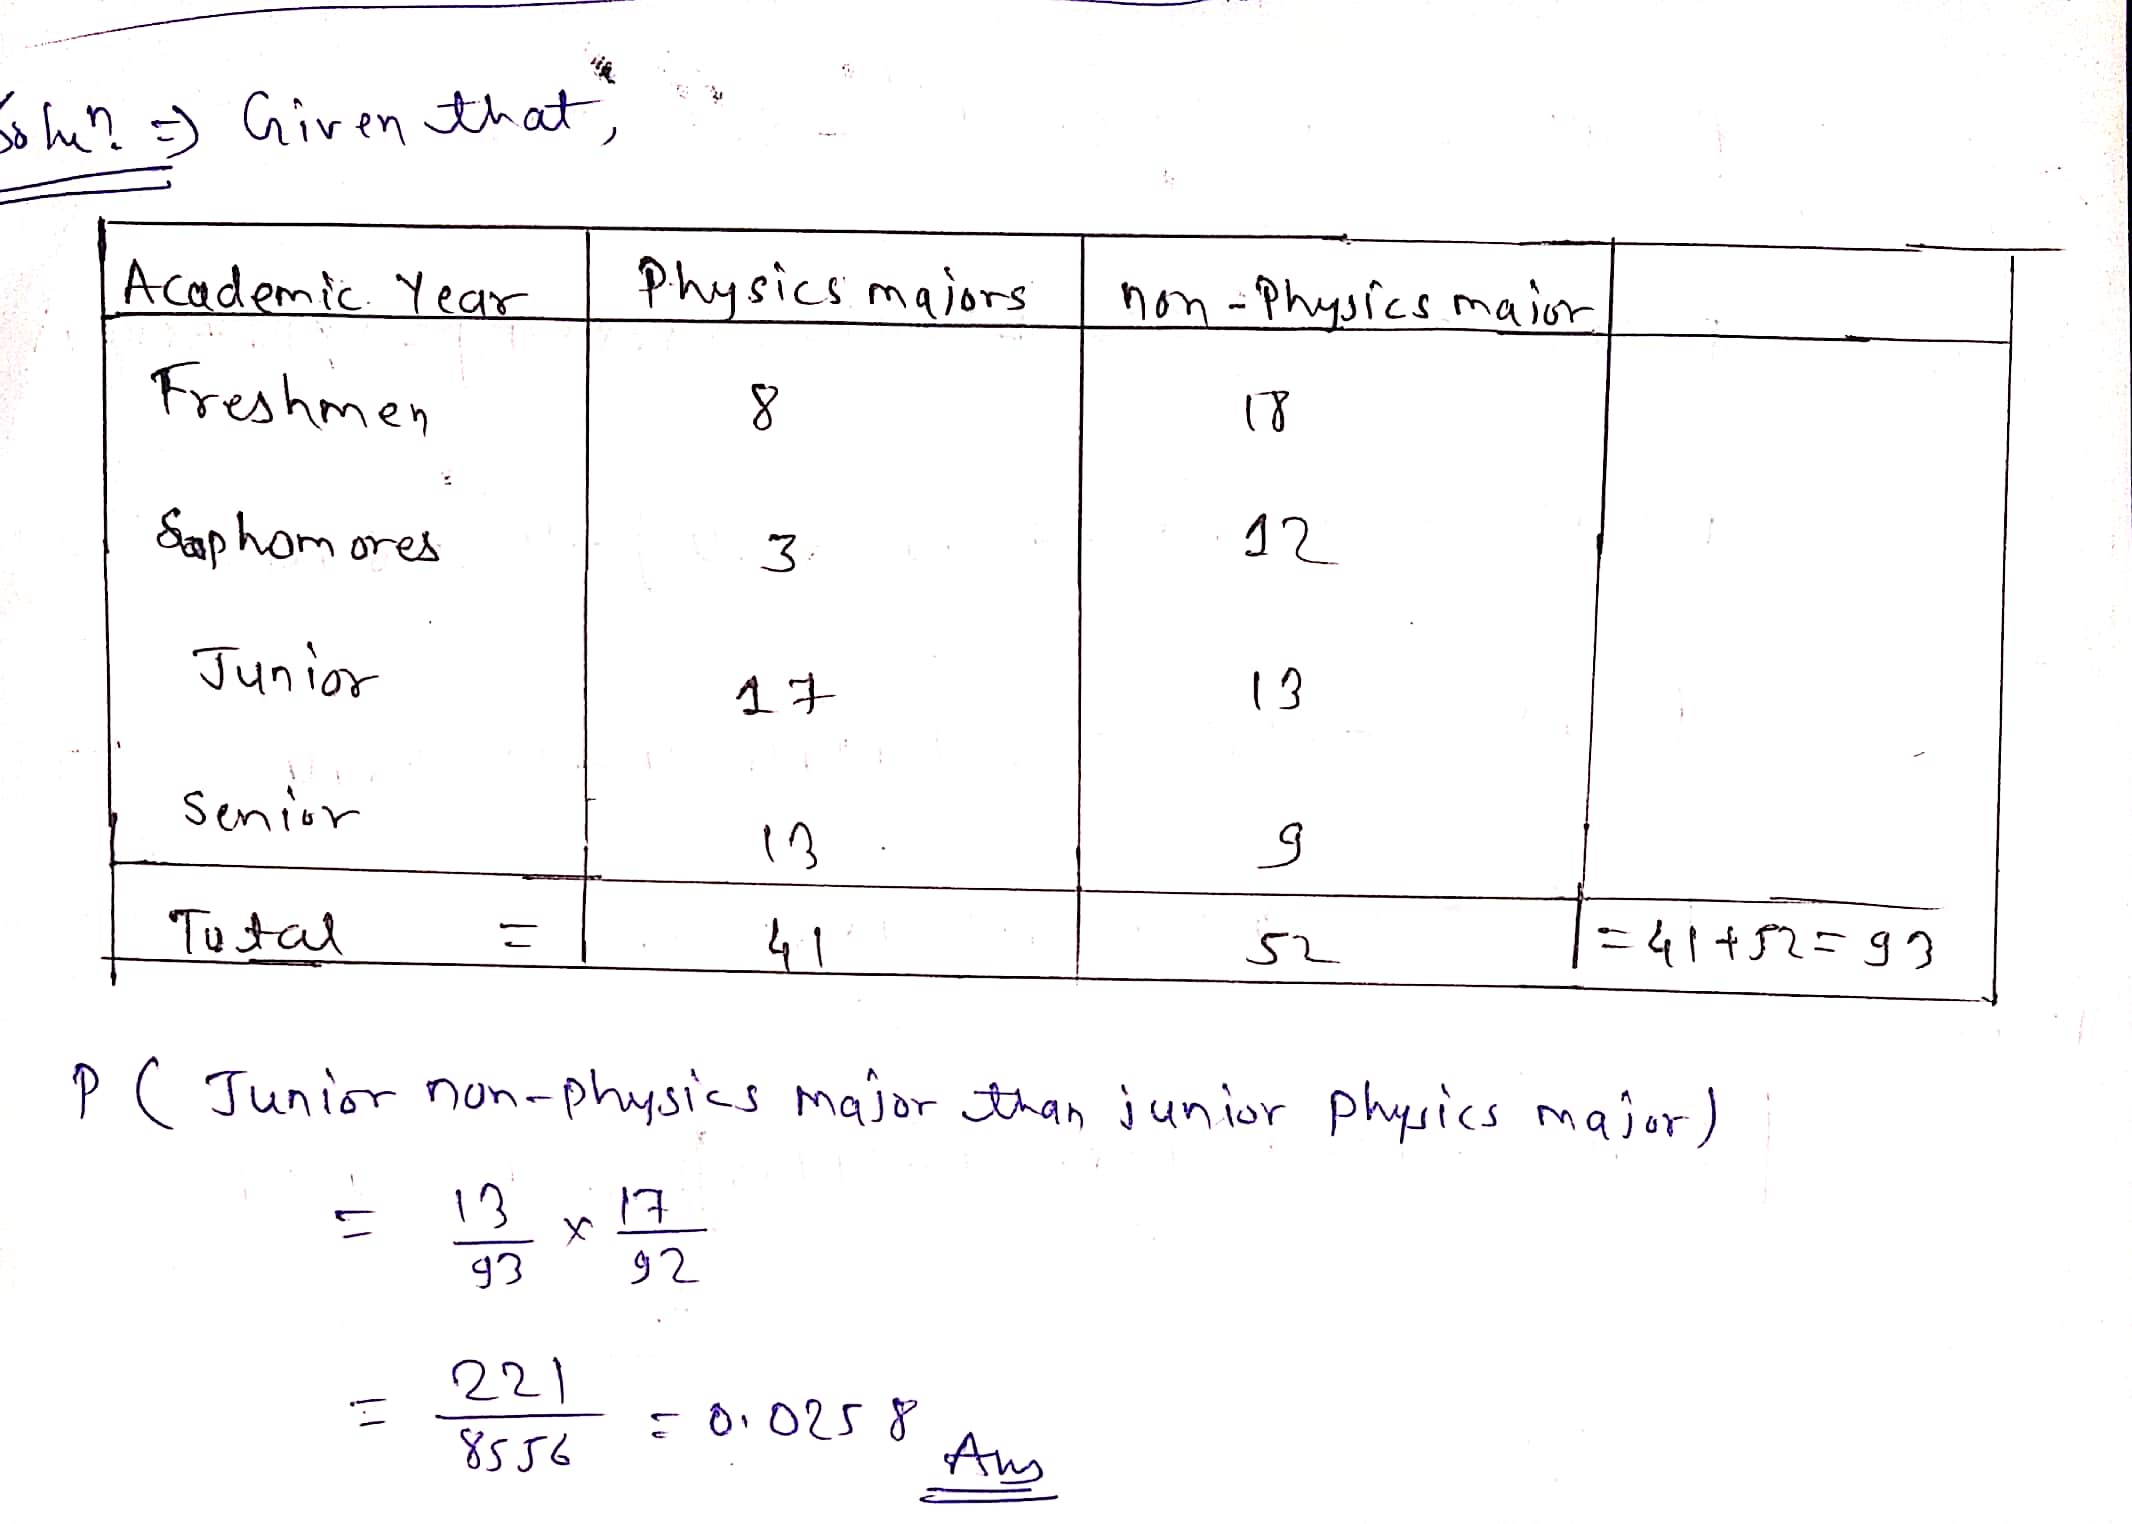 Soluⁿ. ⇒ Given that,
Academic Year Physics majors non-Physics major
Freshmen 8 18
Sophomores 3 12
Junior 17 13
Senior 13 9
Total = 41 52 = 41+52=93
P ( Junior non-physics major than junior physics major)
= 13/93 × 17/92
= 221/8556 = 0.0258 Ans